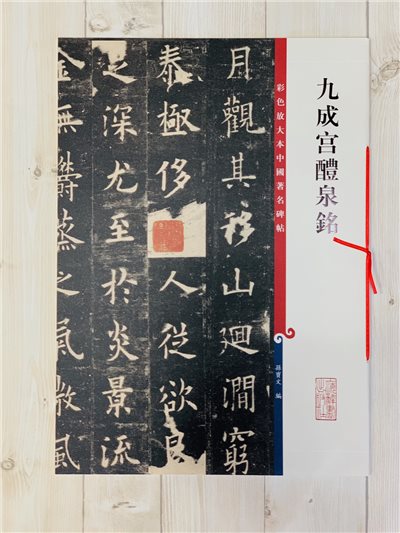 九成宫醴泉銘
彩色放大本中國著名碑帖
孫寶文 編
月觀其移山迴澗窮
泰極侈人從欲良
之深尤至於炎景流
金無鬱蒸之氣微風